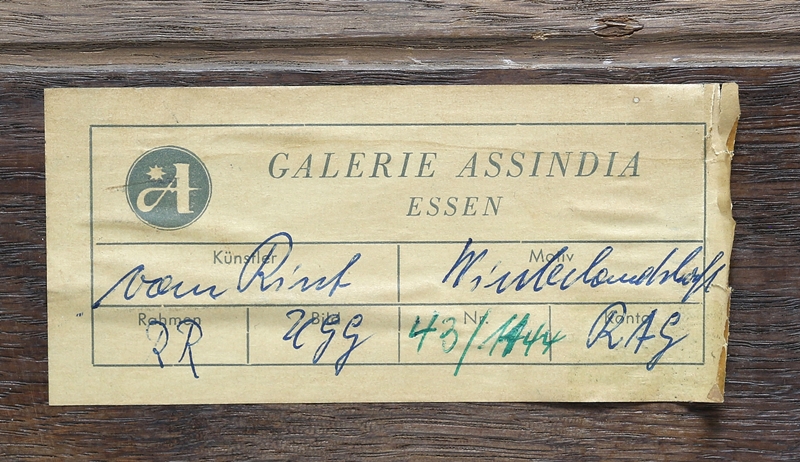 A
GALERIE ASSINDIA
ESSEN
Künstler Motiv
vom Rint Winterlandschaft
Rahmen Bild Nr. Konto
RAG